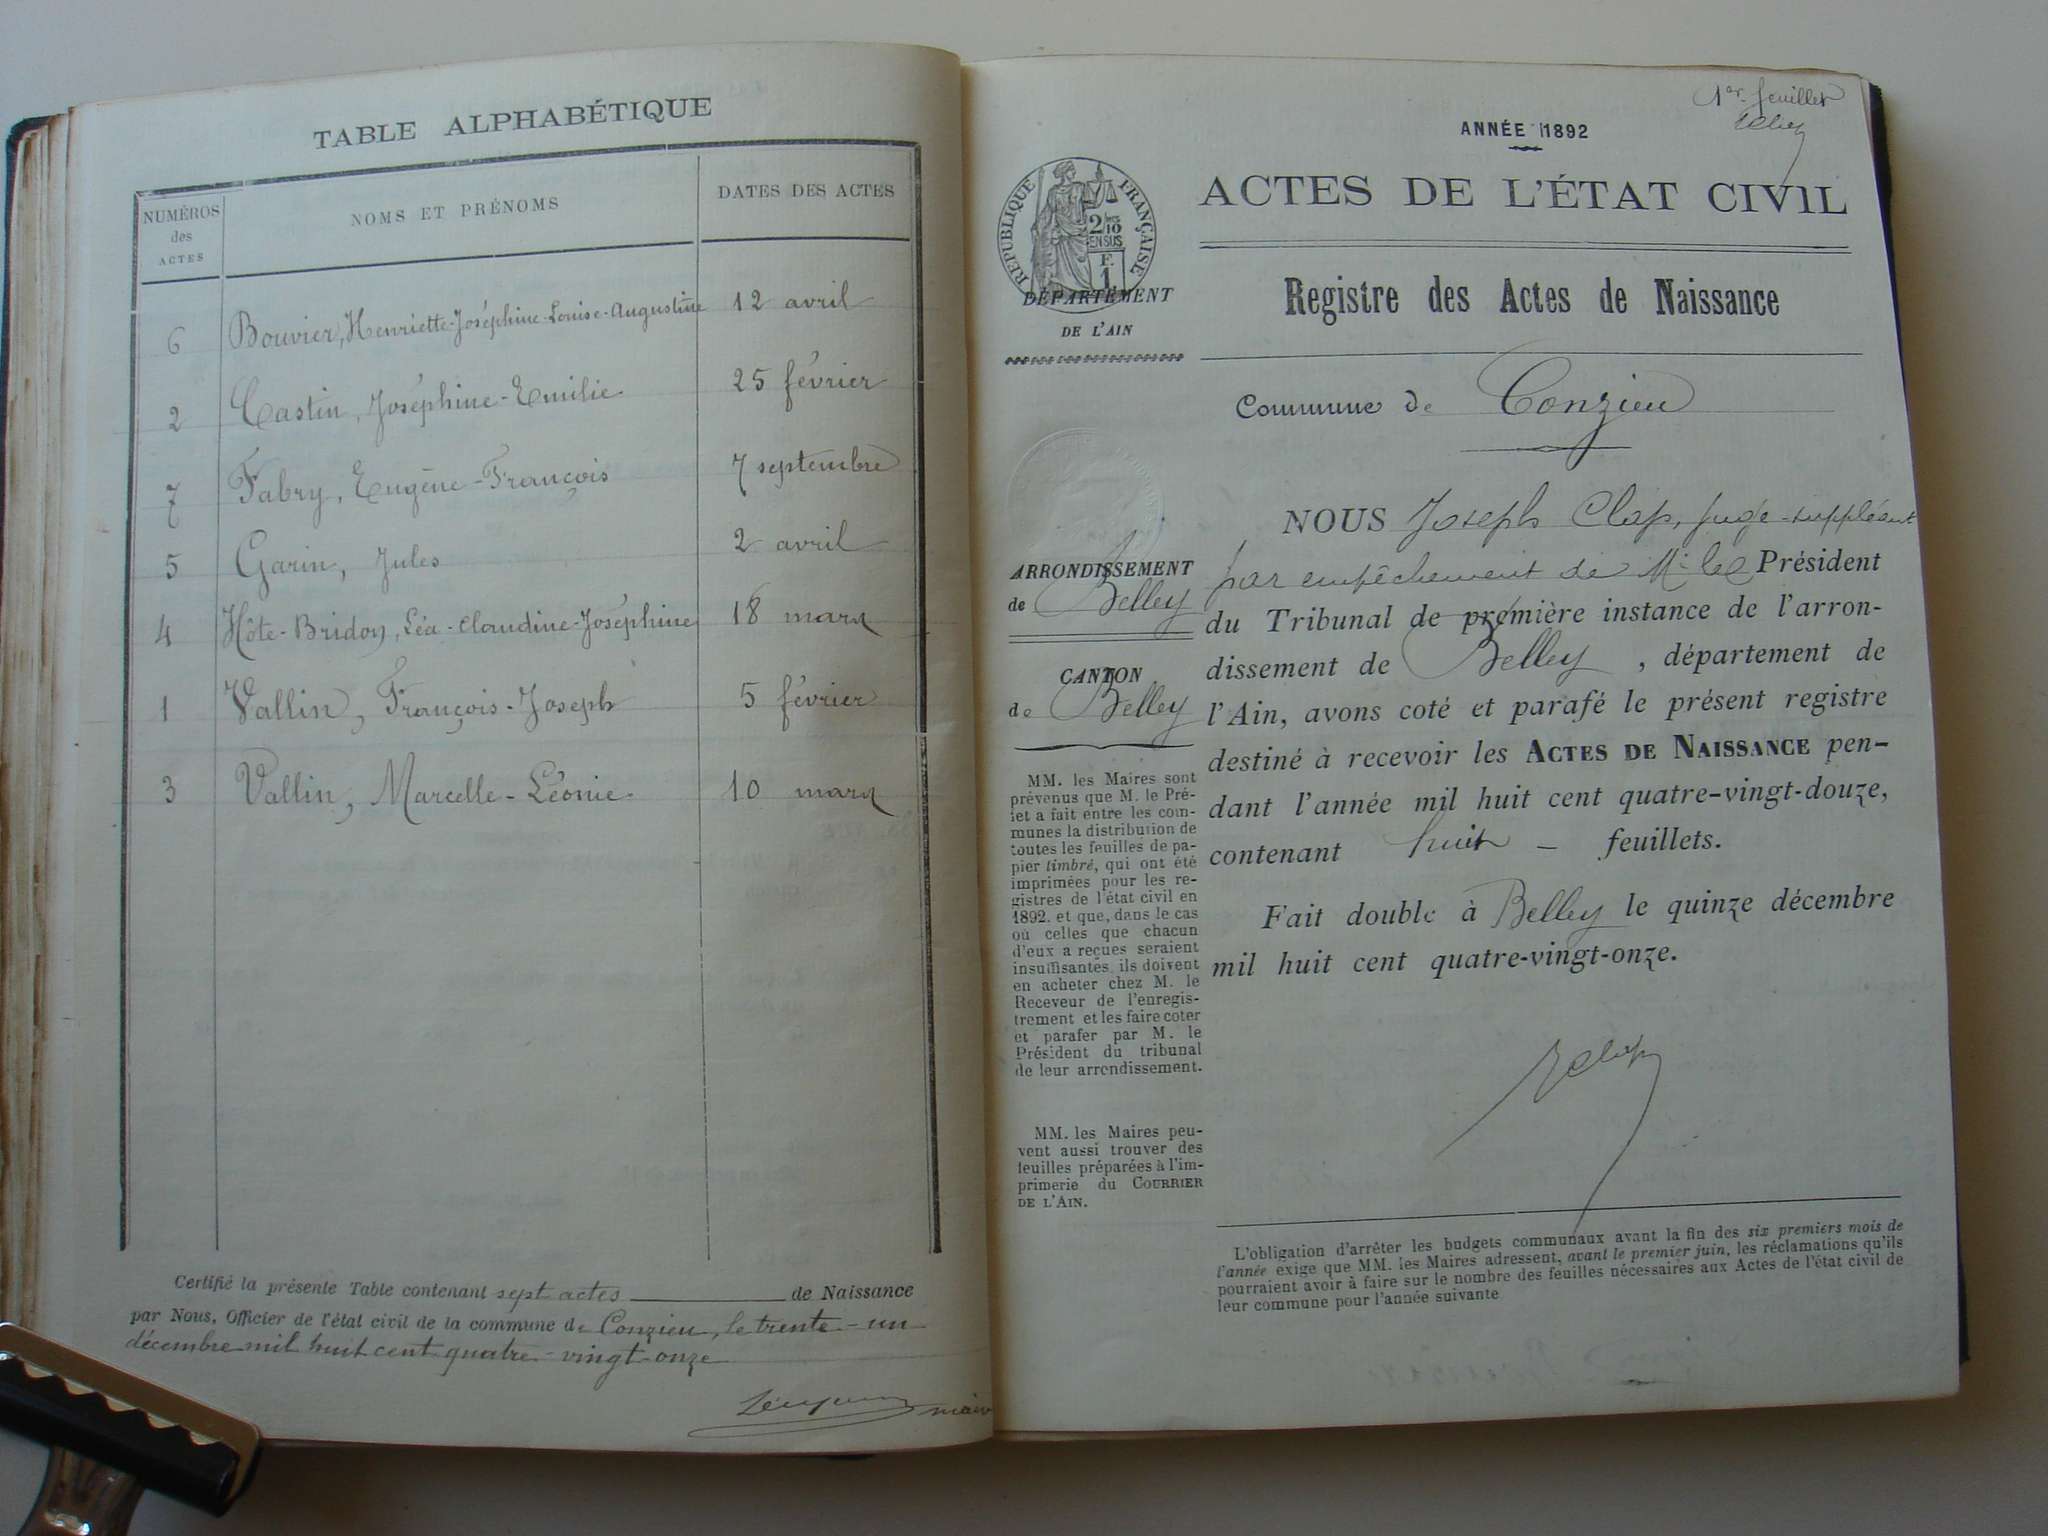 TABLE ALPHABÉTIQUE
NUMÉROS des ACTES
NOMS ET PRÉNOMS
DATES DES ACTES
6 Bouvier, Henriette-Joséphine-Louise-Augustine 12 avril
2 Castin, Joséphine-Emilie 25 février
7 Fabry, Eugène-François 7 septembre
5 Garin, Jules 2 avril
4 Hôte-Bridon, Léa-Claudine-Joséphine 18 mars
1 Vallin, François-Joseph 5 février
3 Vallin, Marcelle-Léonie 10 mars
Certifié la présente Table contenant sept actes de Naissance
par Nous, Officier de l'état civil de la commune de Conzieu, le trente-un
décembre mil huit cent quatre-vingt-onze
maire
1er feuillet
ANNÉE 1892
ACTES DE L'ÉTAT CIVIL
RÉPUBLIQUE FRANÇAISE
2/10
EN SUS
F.
1
DÉPARTEMENT
DE L'AIN
Registre des Actes de Naissance
Commune de Conzieu
ARRONDISSEMENT
de Belley
CANTON
de Belley
MM. les Maires sont
prévenus que M. le Pré-
fet a fait entre les com-
munes la distribution de
toutes les feuilles de pa-
pier timbré, qui ont été
imprimées pour les re-
gistres de l'état civil en
1892, et que, dans le cas
où celles que chacun
d'eux a reçues seraient
insuffisantes, ils doivent
en acheter chez M. le
Receveur de l'enregis-
trement et les faire coter
et parafer par M. le
Président du tribunal
de leur arrondissement.
MM. les Maires peu-
vent aussi trouver des
feuilles préparées à l'im-
primerie du COURRIER
DE L'AIN.
NOUS Joseph Clap, juge-suppléant
par empêchement de Mr le Président
du Tribunal de première instance de l'arron-
dissement de Belley, département de
l'Ain, avons coté et parafé le présent registre
destiné à recevoir les ACTES DE NAISSANCE pen-
dant l'année mil huit cent quatre-vingt-douze,
contenant huit - feuillets.
Fait double à Belley le quinze décembre
mil huit cent quatre-vingt-onze.
L'obligation d'arrêter les budgets communaux avant la fin des six premiers mois de
l'année exige que MM. les Maires adressent, avant le premier juin, les réclamations qu'ils
pourraient avoir à faire sur le nombre des feuilles nécessaires aux Actes de l'état civil de
leur commune pour l'année suivante